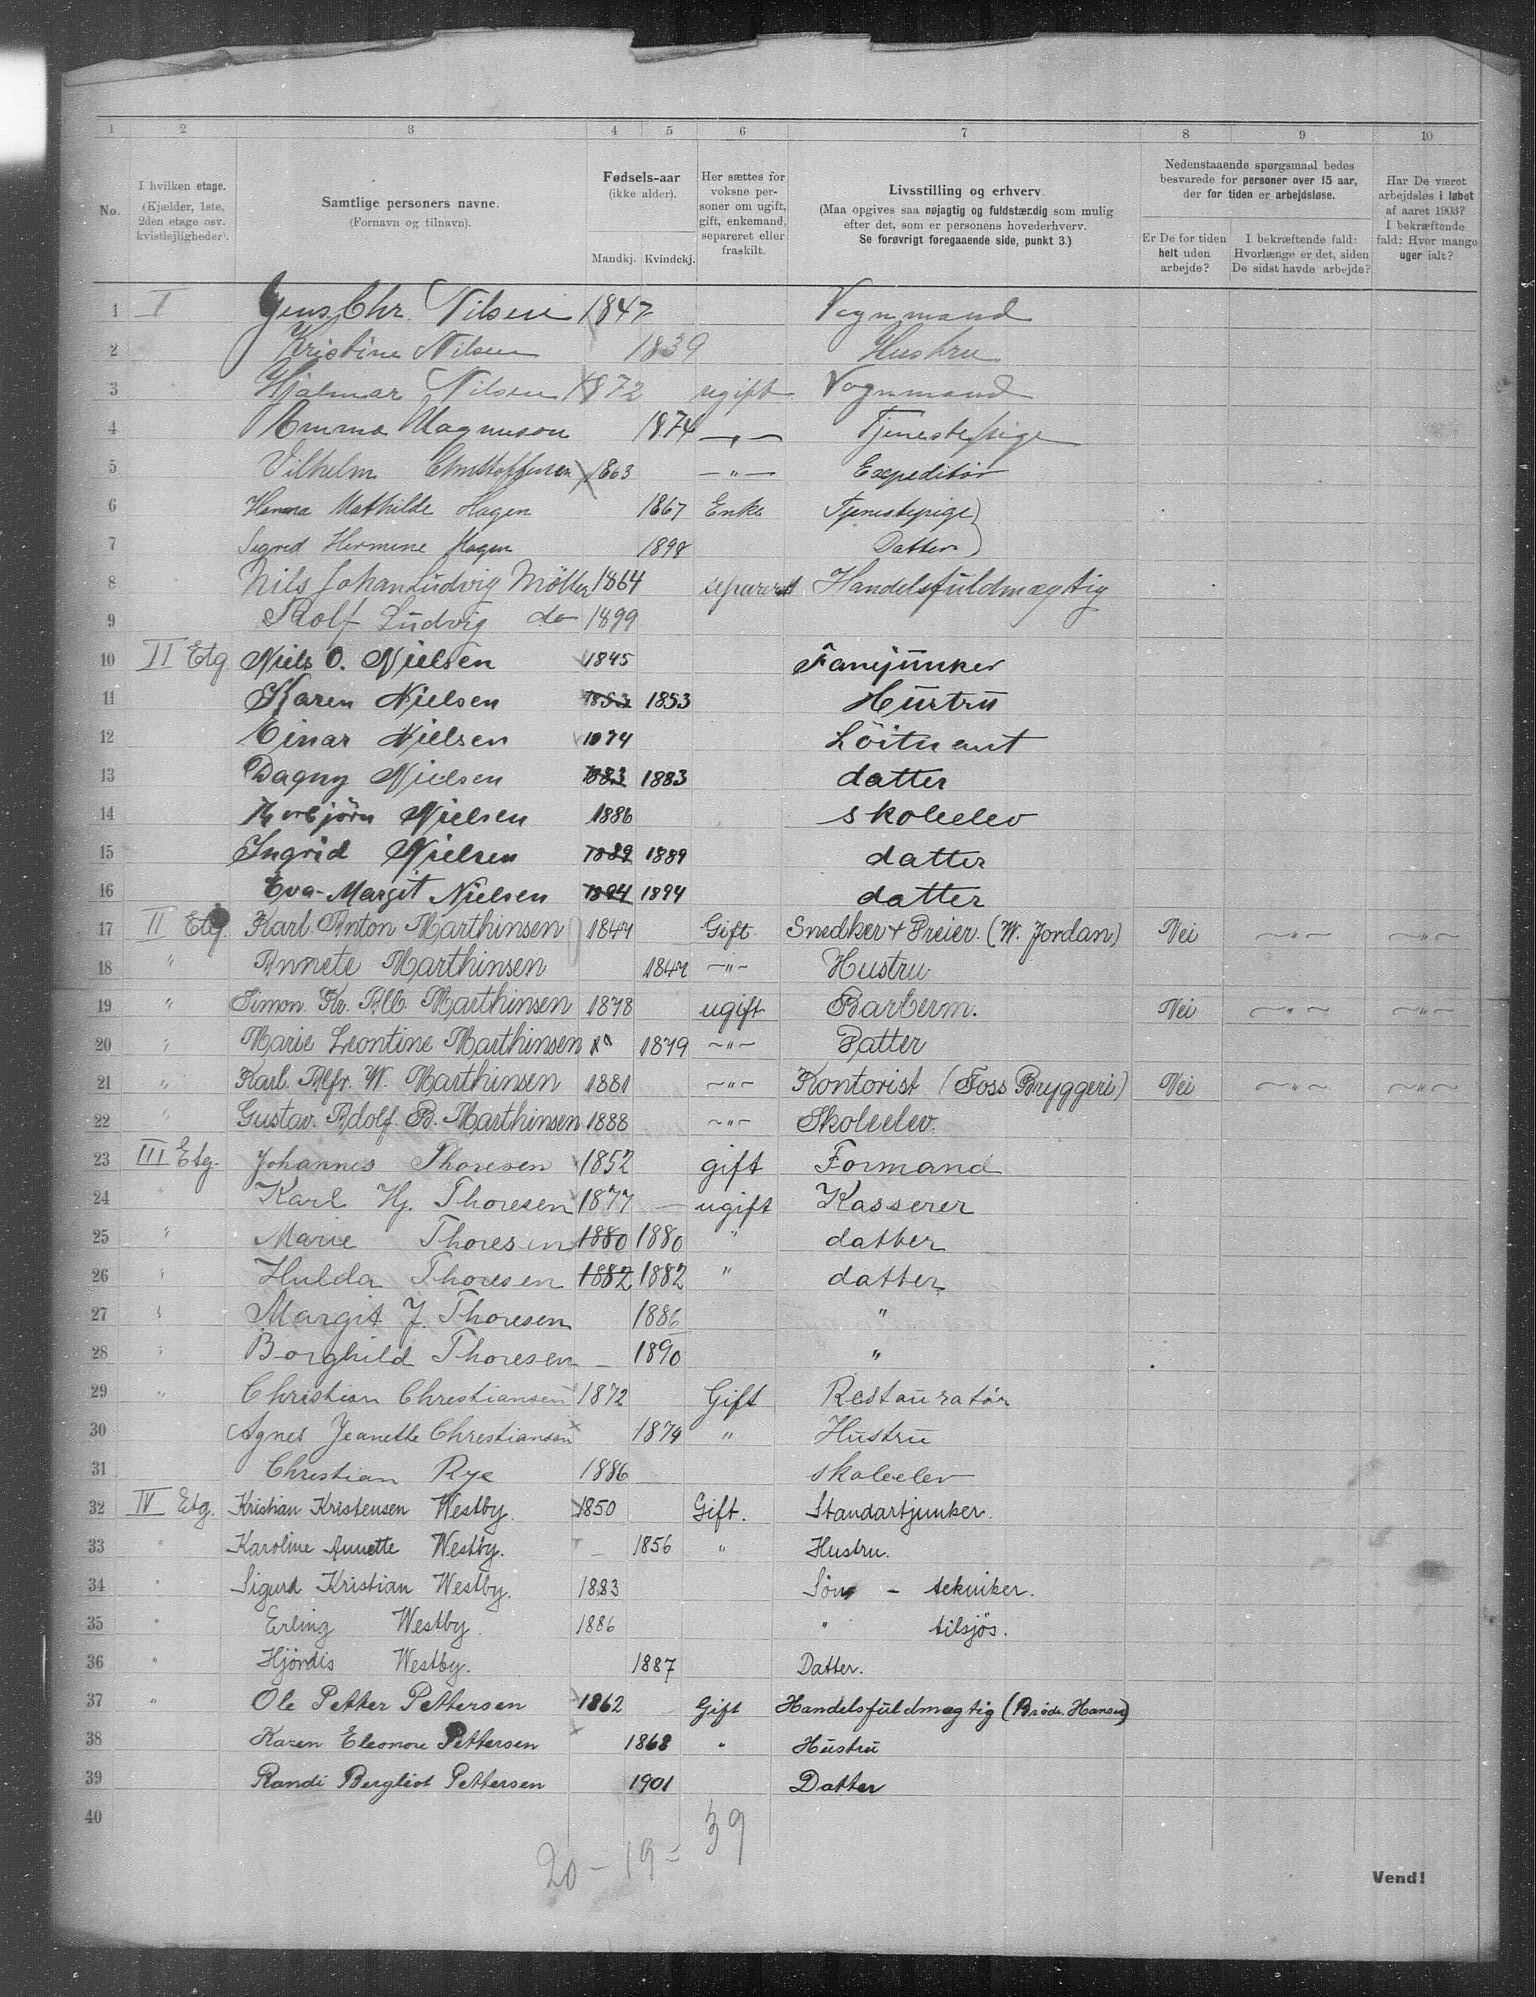 1 2 3 4 5 6 7 8 9 10
No.
I hvilken etage.
(Kjælder, 1ste, 2den etage osv. kvistleiligheder).
Samtlige personers navne.
(Fornavn og tilnavn).
Fødsels-aar
(ikke alder).
Mandkj. Kvindekj.
Her sættes for voksne personer om ugift, gift, enkemand, separeret eller fraskilt.
Livsstilling og erhverv.
(Maa opgives saa nøjagtig og fuldstændig som mulig
efter det, som er personens hovederhverv.
Se forøvrigt foregaaende side, punkt 3.)
Nedenstaaende spørgsmaal bedes
besvarede for personer over 15 aar,
der for tiden er arbejdsløse.
Er De for tiden
helt uden
arbejde?
I bekræftende fald:
Hvorlænge er det, siden
De sidst havde arbejde?
Har De været
arbejdsløs i løbet
af aaret 1903?
I bekræftende
fald: Hvor mange
uger ialt?
1 I Jens Chr. Nilsen 1847 Vognmand
2 Kristine Nilsen 1839 Hustru
3 Hjalmar Nilsen 1872 ugift Vognmand
4 Emma Magnuson 1874 — " — Tjenestepige
5 Vilhelm Christoffersen 1863 — " — Expeditør
6 Hanna Mathilde Hagen 1867 Enke Tjenestepige)
7 Sigrid Hermine Hagen 1898 Datter)
8 Nils Johan Ludvig Møller 1864 separert Handelsfuldmægtig
9 Rolf Ludvig do 1899
10 II Etg Niels O. Nielsen 1845 Fanejunker
11 Karen Nielsen 1853 1853 Hustru
12 Einar Nielsen 1874 Löitnant
13 Dagny Nielsen 1883 1883 datter
14 Thorbjörn Nielsen 1886 skoleelev
15 Ingrid Nielsen 1889 1889 datter
16 Eva-Margit Nielsen 1894 1894 datter
17 II Etg. Karl Anton Marthinsen 1847 Gift. Snedker + Dreier. (W. Jordan) Nei — " — — " —
18 " Annete Marthinsen 1847 — " — Hustru
19 " Simon Kr. Alb. Marthinsen 1878 ugift Barberm. Nei — " — — " —
20 " Marie Leontine Marthinsen 1879 — " — Datter
21 " Karl Alfr. W. Marthinsen 1881 — " — Kontorist (Foss Bryggeri) Nei — " — — " —
22 " Gustav Adolf B. Marthinsen 1888 — " — Skoleelev.
23 III Etg. Johannes Thoresen 1852 gift Formand
24 " Karl Hj. Thoresen 1877 — ugift Kasserer
25 " Marie Thoresen 1880 1880 " datter
26 " Hulda Thoresen 1882 1882 " datter
27 " Margit J. Thoresen 1886 "
28 " Borghild Thoresen — 1890 "
29 " Christian Christiansen 1872 Gift Restauratør
30 Agnes Jeanette Christiansen 1874 " Hustru
31 Christian Rye 1886 skoleelev
32 IV Etg. Kristian Kristensen Westby. 1850 Gift. Standartjunker.
33 " Karoline Annette Westby. — 1856 " Hustru.
34 " Sigurd Kristian Westby. 1883 Sön — tekniker.
35 " Erling Westby. 1886 " tilsjös.
36 " Hjördis Westby. 1887 Datter.
37 " Ole Petter Pettersen 1862 Gift Handelsfuldmægtig (Brödr. Hansen)
38 Karen Eleonore Pettersen 1868 " Hustru
39 Randi Bergliot Pettersen 1901 Datter
40
20 – 19 = 39
Vend!